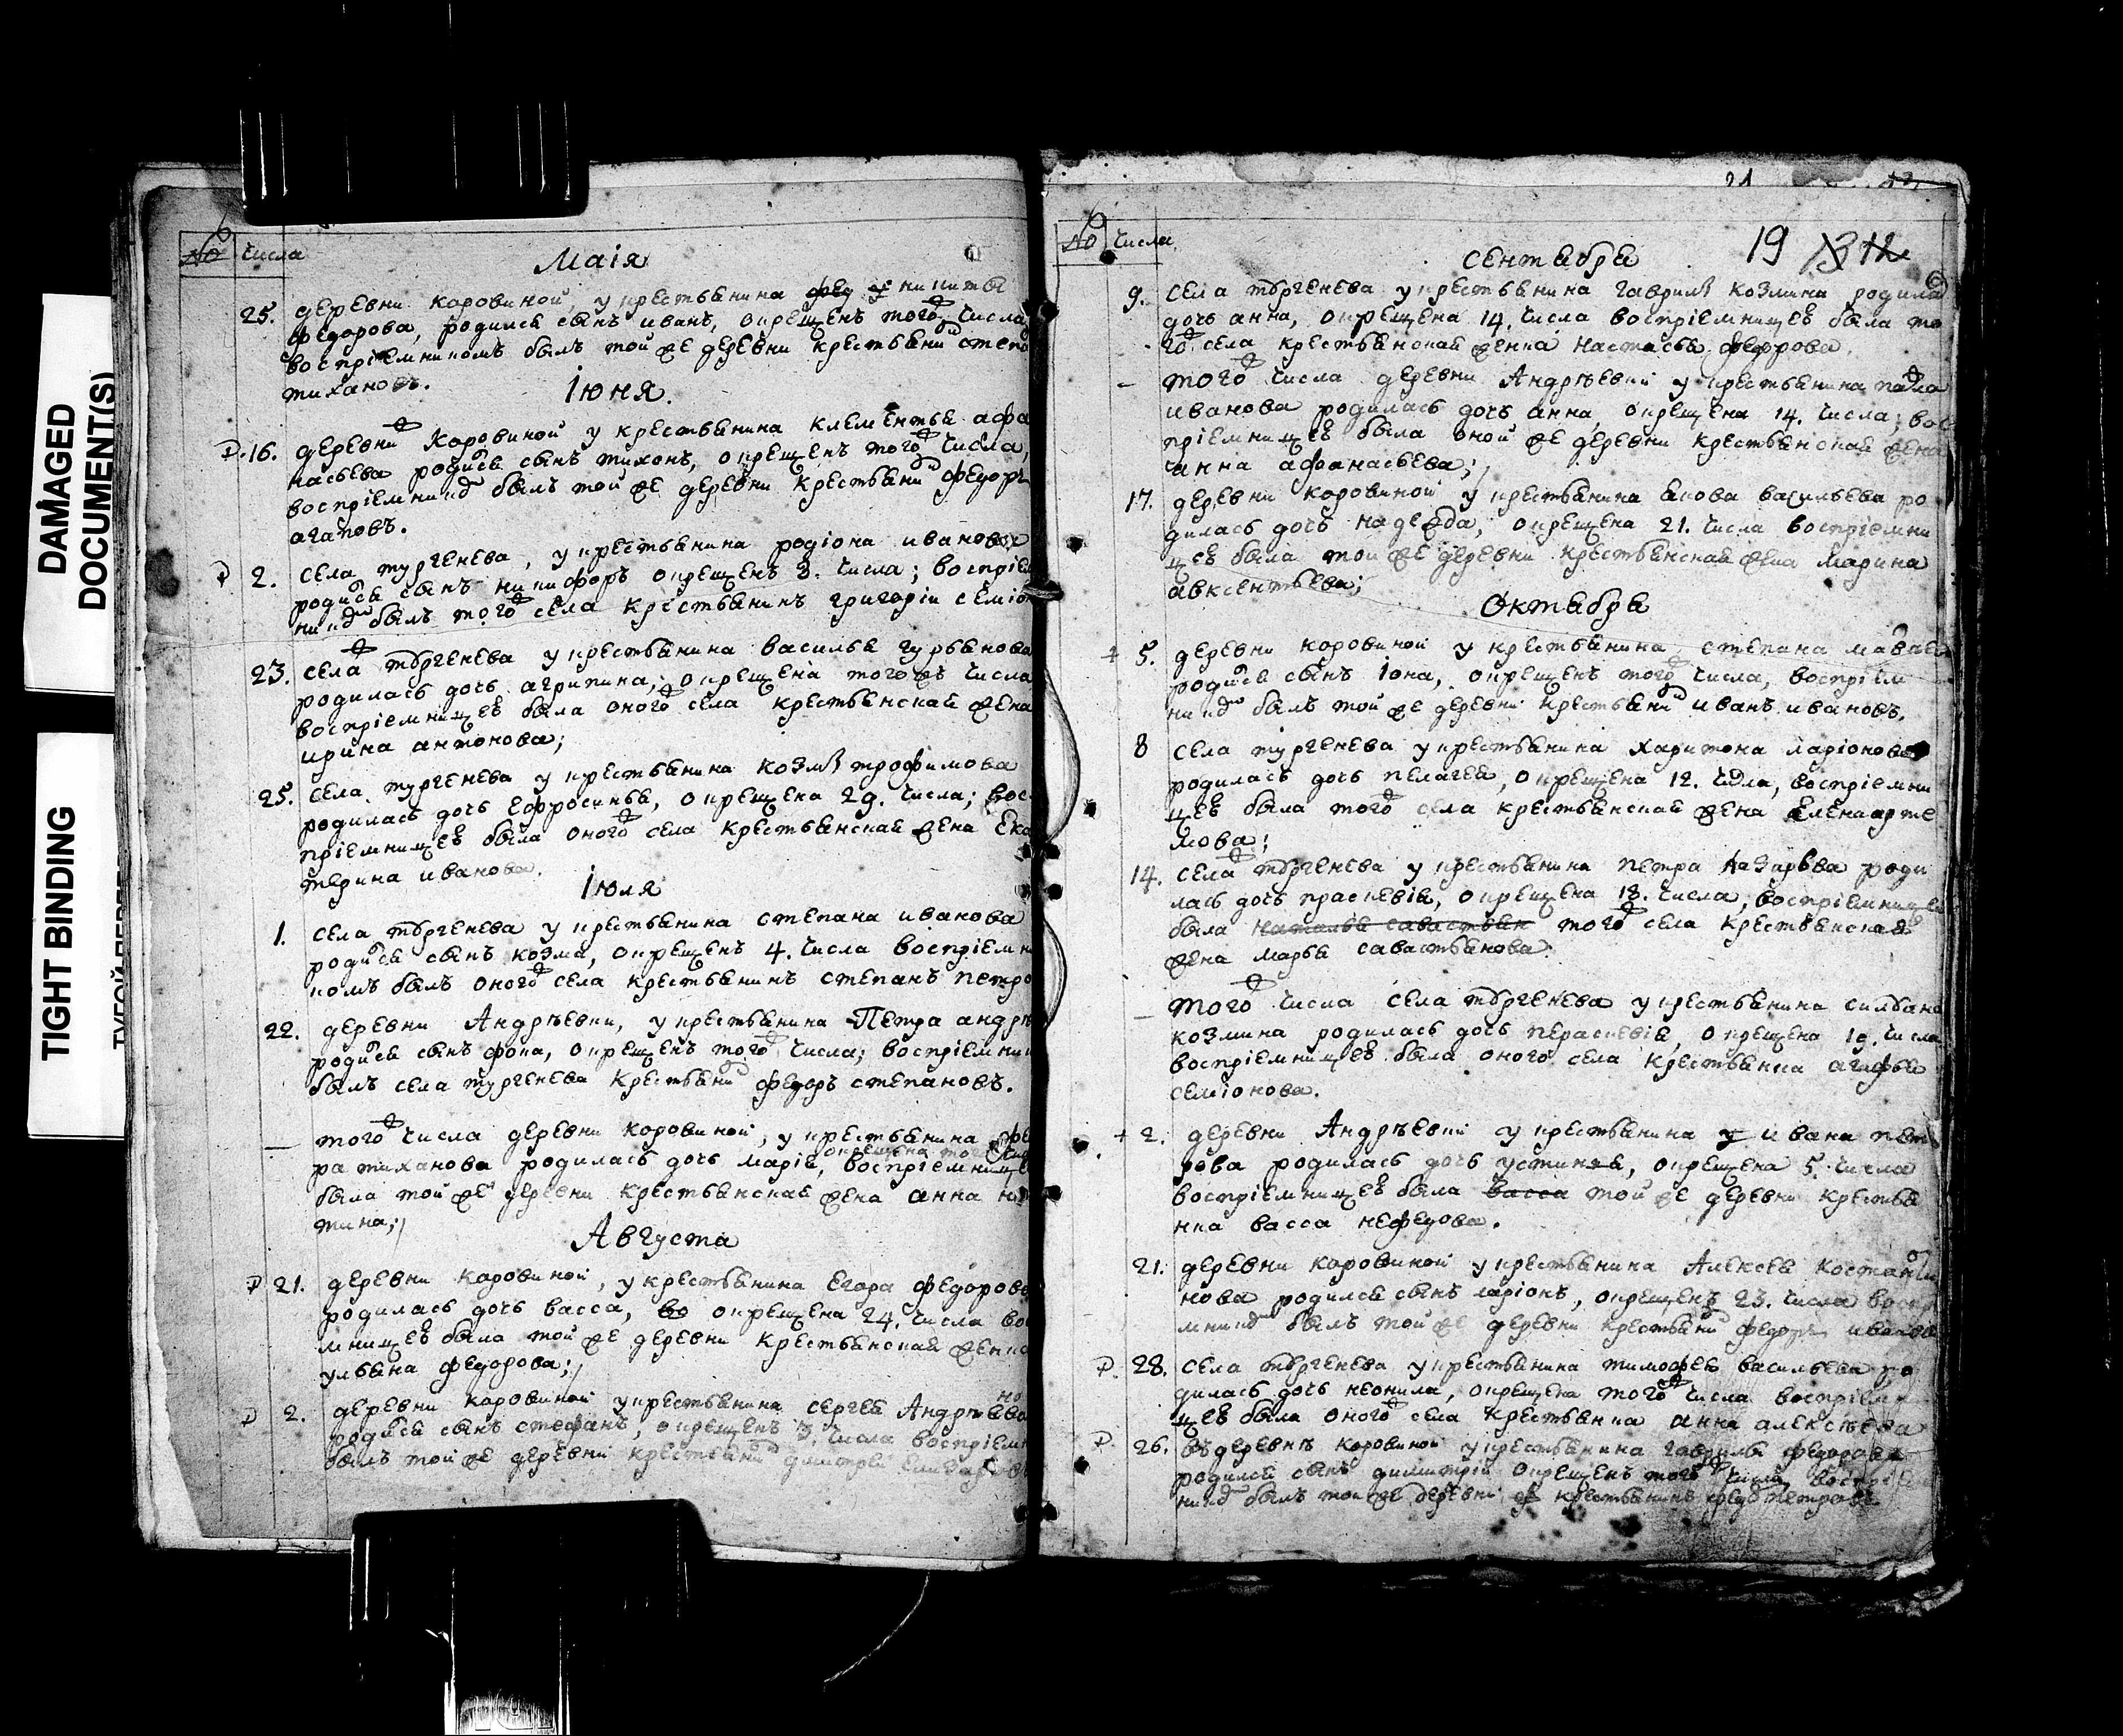 DAMAGED
DOCUMENT(S)
TIGHT BINDING
№ числа
Маія
25. деревни коровиной, у крестьянина никиты
федорова, родился сынъ иванъ, окрещенъ того числа
воспріемникомъ былъ той же деревни крестьянинъ степа
тихановъ.
Іюня.
16. деревни коровиной у крестьянина клементья афа
насьева родился сынъ тихонъ, окрещенъ того числа,
воспріемникъ былъ той же деревни крестьянинъ федоръ
агаповъ.
2. села тургенева, у крестьянина родіона иванова
родился сынъ никифоръ окрещенъ 3. числа; воспріем
никъ былъ того села крестьянинъ григорій семіон
23. села тȣргенева у крестьянина василья гурьянова
родилась дочь агрипина, окрещена того жъ числа
воспріемницею была оного села крестьянская жена
ирина антонова;
25. села тургенева у крестьянина козмы трофимова
родилась дочь Ефросинья, окрещена 29. числа; вос
пріемницею была оного села крестьянская жена Ека
терина иванова.
Іюля
1. села тȣргенева у крестьянина степана иванова
родился сынъ козма, окрещенъ 4. числа воспріемни
комъ былъ оного села крестьянинъ степанъ петро
22. деревни Андрѣевки, у крестьянина Петра андрѣ
родился сынъ фока, окрещенъ того числа; воспріемник
былъ села тургенева крестьянинъ федоръ степановъ.
— того числа деревни коровиной, у крестьянина фе
окрещена того чис
ра тиханова родилась дочь марія, воспріемнице
была той же деревни крестьянская жена анна ни
тина;
Августа
21. деревни коровиной, у крестьянина Егора федорова
родилась дочь васса, во окрещена 24. числа во
мницею была той же деревни крестьянская женка
ульяна федорова;
2. деревни коровиной у крестьянина сергея Андрѣева
родился сынъ стефанъ, окрещенъ 3. числа воспріемн
былъ той же деревни крестьянинъ димитрей Елизаров
21
№ числа
19
сентября
9. села тȣргенева у крестьянина гаврилы козмина родила
дочь анна, окрещена 14. числа воспріемницею была то
го села крестьянская женка настасья федорова.
— того числа деревни Андрѣевки у крестьянина павла
иванова родилась дочь анна, окрещена 14. числа; вос
пріемницею была оной же деревни крестьянская жена
анна афанасьева;
17. деревни коровиной у крестьянина якова васильева ро
дилась дочь надежда, окрещена 21. числа воспріемни
цею была той же деревни крестьянская жена марина
авксентьева;
Октября
5. деревни коровиной у крестьянина степана
родился сынъ Іона, окрещенъ того числа, воспріем
никъ былъ той же деревни крестьянинъ иванъ ивановъ.
8 села тургенева у крестьянина харитона ларіонова
родилась дочь пелагея, окрещена 12. числа, воспріемни
цею была того села крестьянская жена елена арте
мова;
14. села тȣргенева у крестьянина петра назарьва роди
лась дочь праскевія, окрещена 18. числа, воспріемнице
была наталья савастьян того села крестьянская
жена марья савастьянова.
— того числа села тȣргенева у крестьянина силȣана
козмина родилась дочь перасковія, окрещена 19. числа
воспріемницею была оного села крестьянка агафья
семіонова.
2. деревни Андрѣевки у крестьянина у ивана пет
рова родилась дочь устиния, окрещена 5. числа
воспріемницею была васса той же деревни крестья
нка васса нефедова.
21. деревни коровиной у крестьянина Алексея костанти
нова родился сынъ ларіонъ, окрещенъ 23. числа воспр
мникъ былъ той же деревни крестьянинъ федоръ иванов
28. села тȣргенева у крестьянина тимофея васильева ро
дилась дочь неонила, окрещена того числа воспріемн
цею была оного села крестьянка анна алексѣева
26. въ деревнѣ коровиной у крестьянина гаврилы федорова
родился сынъ димитрій окрещенъ того числа воспрі
никъ былъ той же деревни крестьянинъ петровъ